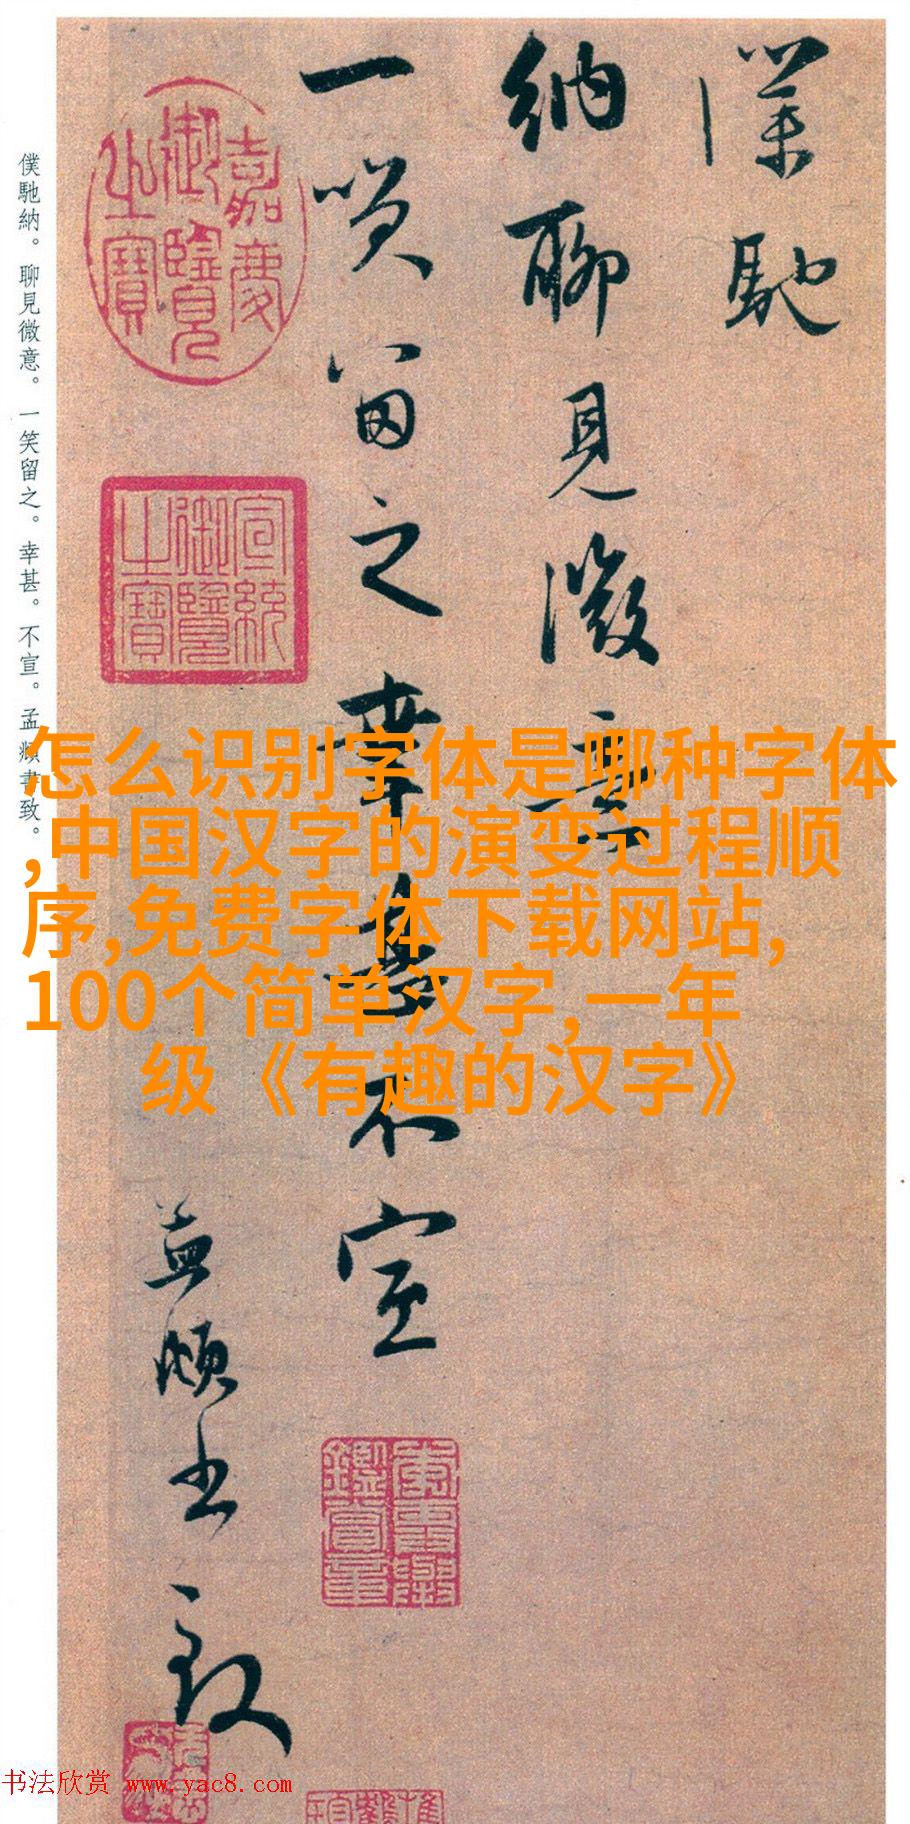 僕馳
納聊見微意
一笑留之幸甚不宣
孟頫書致
嘉慶
御覽
之寶
宣統
御覽
之寶
僕馳納。聊見微意。一笑留之。幸甚。不宣。孟頫書致。
怎么识别字体是哪种字体
,中国汉字的演变过程顺
序,免费字体下载网站,
100个简单汉字,一年
级《有趣的汉字》
书法欣赏 www.yac8.com